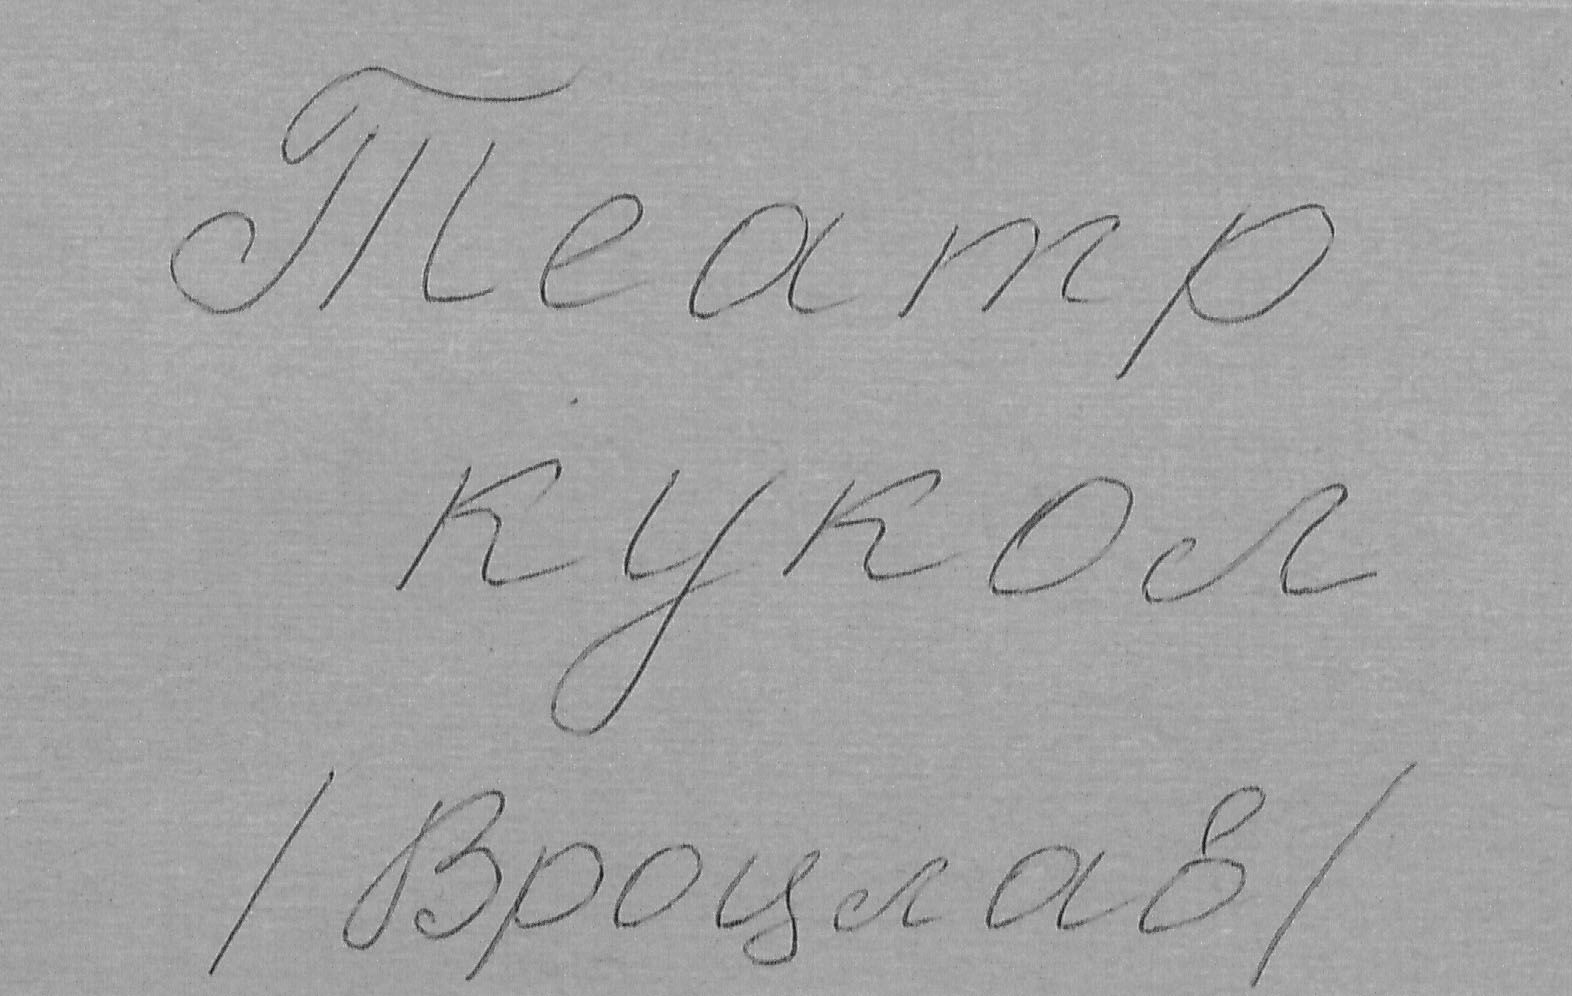 Театр
кукол
/Вроцлав/